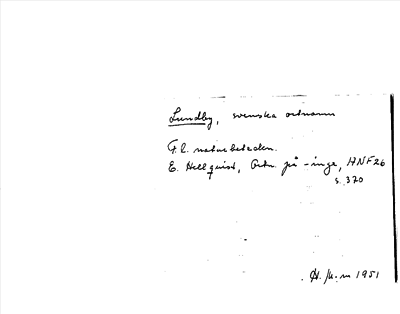 Lundby, svenska ortnamn
F.l. naturbeteckn.
E. Hellquist, Ortn. på -inge, ANF 26
s. 370
1951